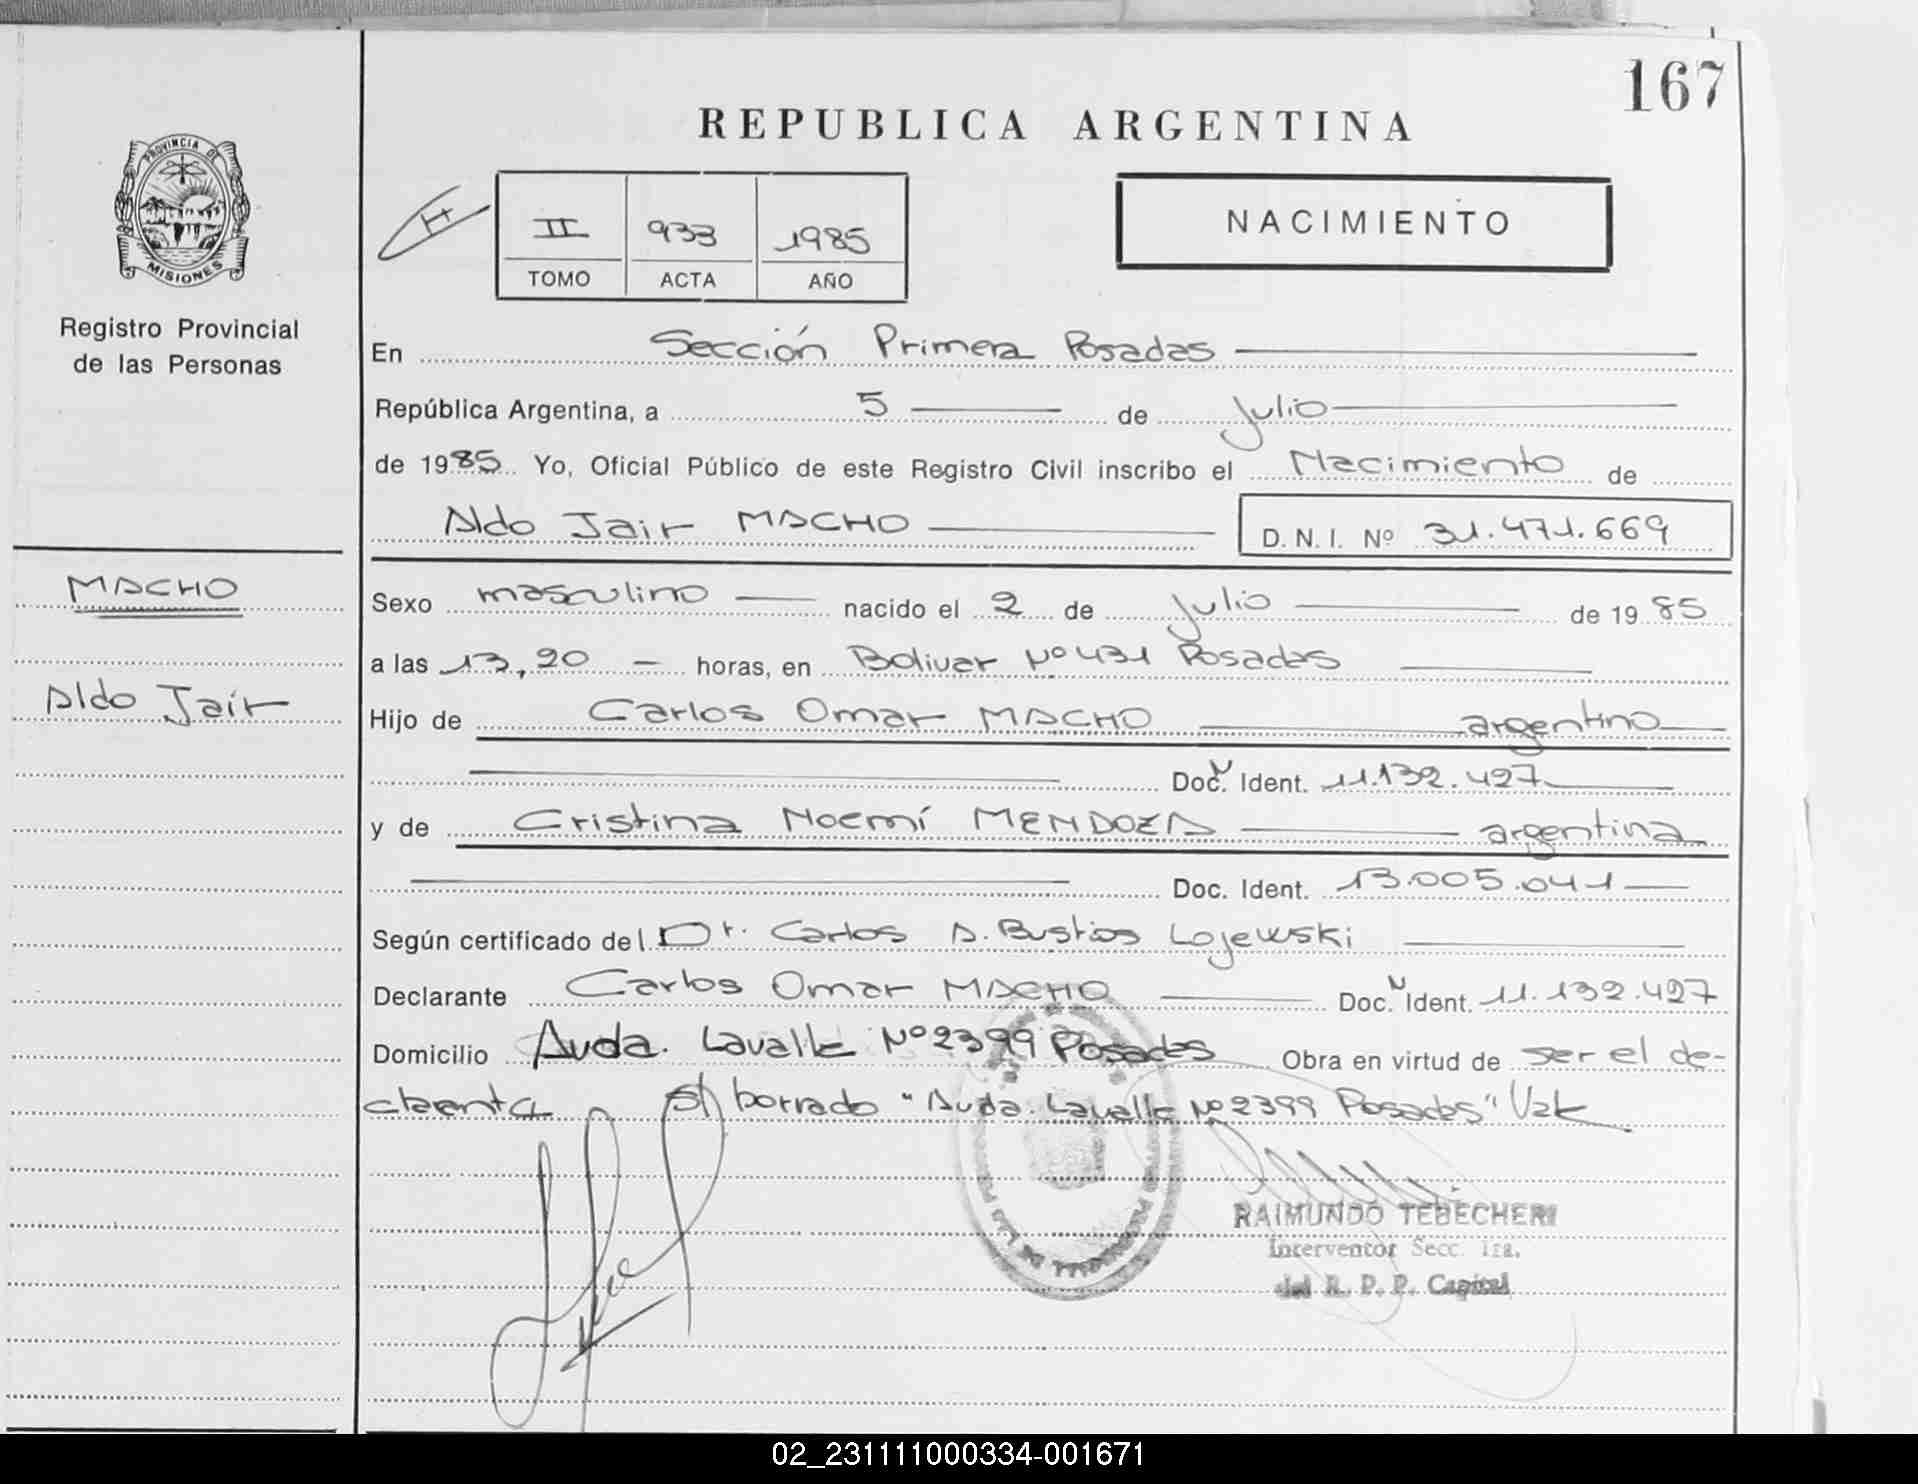 167
REPUBLICA ARGENTINA
PROVINCIA DE
MISIONES
Registro Provincial
de las Personas
II 933 1985
TOMO ACTA AÑO
NACIMIENTO
En Sección Primera Posadas
República Argentina, a 5 de Julio
de 1985 Yo, Oficial Público de este Registro Civil inscribo el Nacimiento de
Aldo Jair MACHO D.N.I. Nº 31.471.669
MACHO
Aldo Jair
Sexo masculino nacido el 2 de Julio de 1985
a las 13,20 horas, en Bolivar Nº 431 Posadas
Hijo de Carlos Omar MACHO argentino
Doc. Ident. 11.132.427
y de Cristina Noemí MENDOZA argentina
Doc. Ident. 13.005.041
Según certificado del Dr. Carlos A. Bustios Lojewski
Declarante Carlos Omar MACHO Doc. Ident. 11.132.427
Domicilio Avda. Lavalle Nº 2399 Posadas Obra en virtud de ser el de-
S/ borrado "Avda. Lavalle Nº 2399 Posadas" Vale
RAIMUNDO TEBECHERI
Interventor Secc. 1ra.
del R. P. P. Capital
02_231111000334-001671